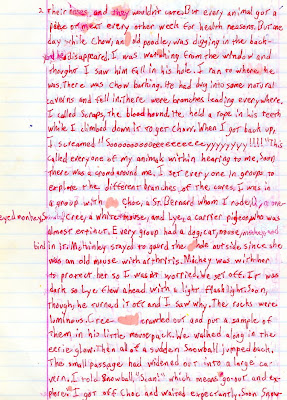 2. their noses, and they wouldn't care. But every animal got a
piece of meat every other week for health reasons. But one
day while Chow, an old poodle, was digging in the back-
yard he disappeared. I was watching from the window and
thought I saw him fall in hole. I ran to where he
was. There was Chow barking. He had dug into some natural
caverns and fell in. there were branches leading everywhere.
I called Scraps, the bloodhound. He held a rope in his teeth
while I climbed down in to get Chow. When I got back up,
I screamed!! Soooooooooeeeeeeeeyyyyyyyy!!!!! This
called every one of my animals within hearing to me. Soon
there was a crowd around me. I set every one in groups to
explore the different branches of the caves. I was in
a group with Choc, a St. Bernard whom I rode, a one-
eyed monkey, Cree, a white mouse, and Lye, a carrier pigeon who was
almost extinct. Every group had a dog, cat, mouse, monkey, and
bird in it. Mchinley stayed to guard the hole outside, since she
was an old mouse with arthoritis. Mickey was with her
to protect her so I wasn't worried. We set off. It was
dark so Lye flew ahead with a light flashlight. Soon,
though, he turned it off and I saw why. The rocks were
luminous. Cree crawled out and put a sample of
them in his little mousepack. We walked along in the
eerie glow. Then all of a sudden Snowball jumped back.
The small passage had widened out into a large ca-
vern. I told Snowball, "Scan!" which means go out and ex-
plore. I got off Choc and waited expectantly. Soon Snow-